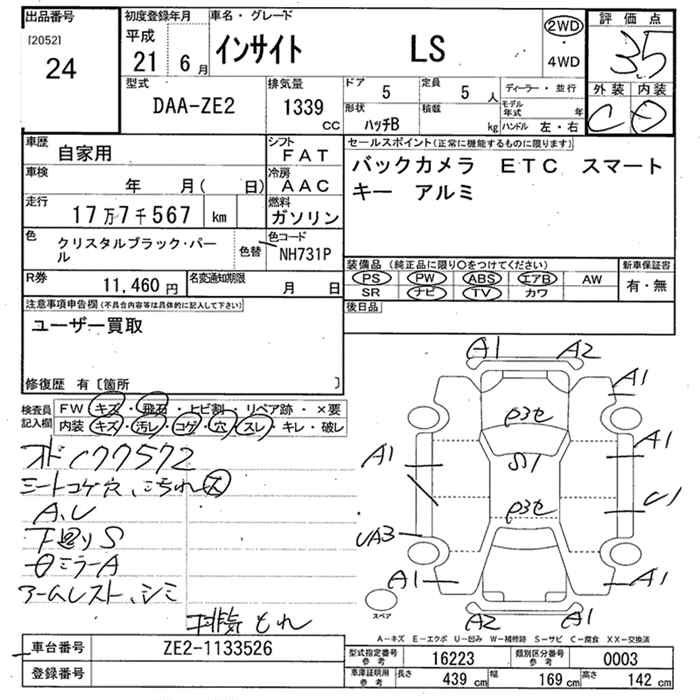 出品番号
[2052]
24
初度登録年月
平成
21 6月
車名・グレード
インサイト LS
2WD
・
4WD
評価点
35
外装 内装
C D
型式
DAA-ZE2
排気量
1339
CC
ドア
5
定員
5 人
形状
ハッチB
積載
kg
ディーラー・並行
モデル年式 年
ハンドル 左・右
車歴
自家用
シフト
FAT
車検
年 月( 日)
冷房
AAC
走行
17万7千567 km
燃料
ガソリン
色
クリスタルブラック・パール
色替
色コード
NH731P
R券
11,460 円
名変通知期限
月 日
セールスポイント(正常に機能するものに限ります)
バックカメラ ETC スマート
キー アルミ
装備品(純正品に限り○をつけてください)
新車保証書
PS PW ABS エアB AW
SR ナビ TV カワ
有・無
後日品
注意事項申告欄(不具合内容等は具体的に記入して下さい)
ユーザー買取
修復歴 有〔箇所 〕
検査員記入欄
FW キズ・飛石・ヒビ割・リペア跡・×要
内装 キズ・汚レ・コゲ・穴・スレ・キレ・破レ
シートコゲ穴、
A、U
下廻りS
ミラーA
アームレスト、シミ
排気もれ
A1 A2
A1
P3セ
A1
A1
S1
U1
P3セ
UA3
A1
A1
A2 A1
スペア
A-キズ E-エクボ U-凹み W-補修跡 S-サビ C-腐食 XX-交換済
車台番号
ZE2-1133526
登録番号
型式指定番号
参考
16223
類別区分番号
参考
0003
車庫証明用
参考
長さ
439 cm
幅
169 cm
高さ
142 cm